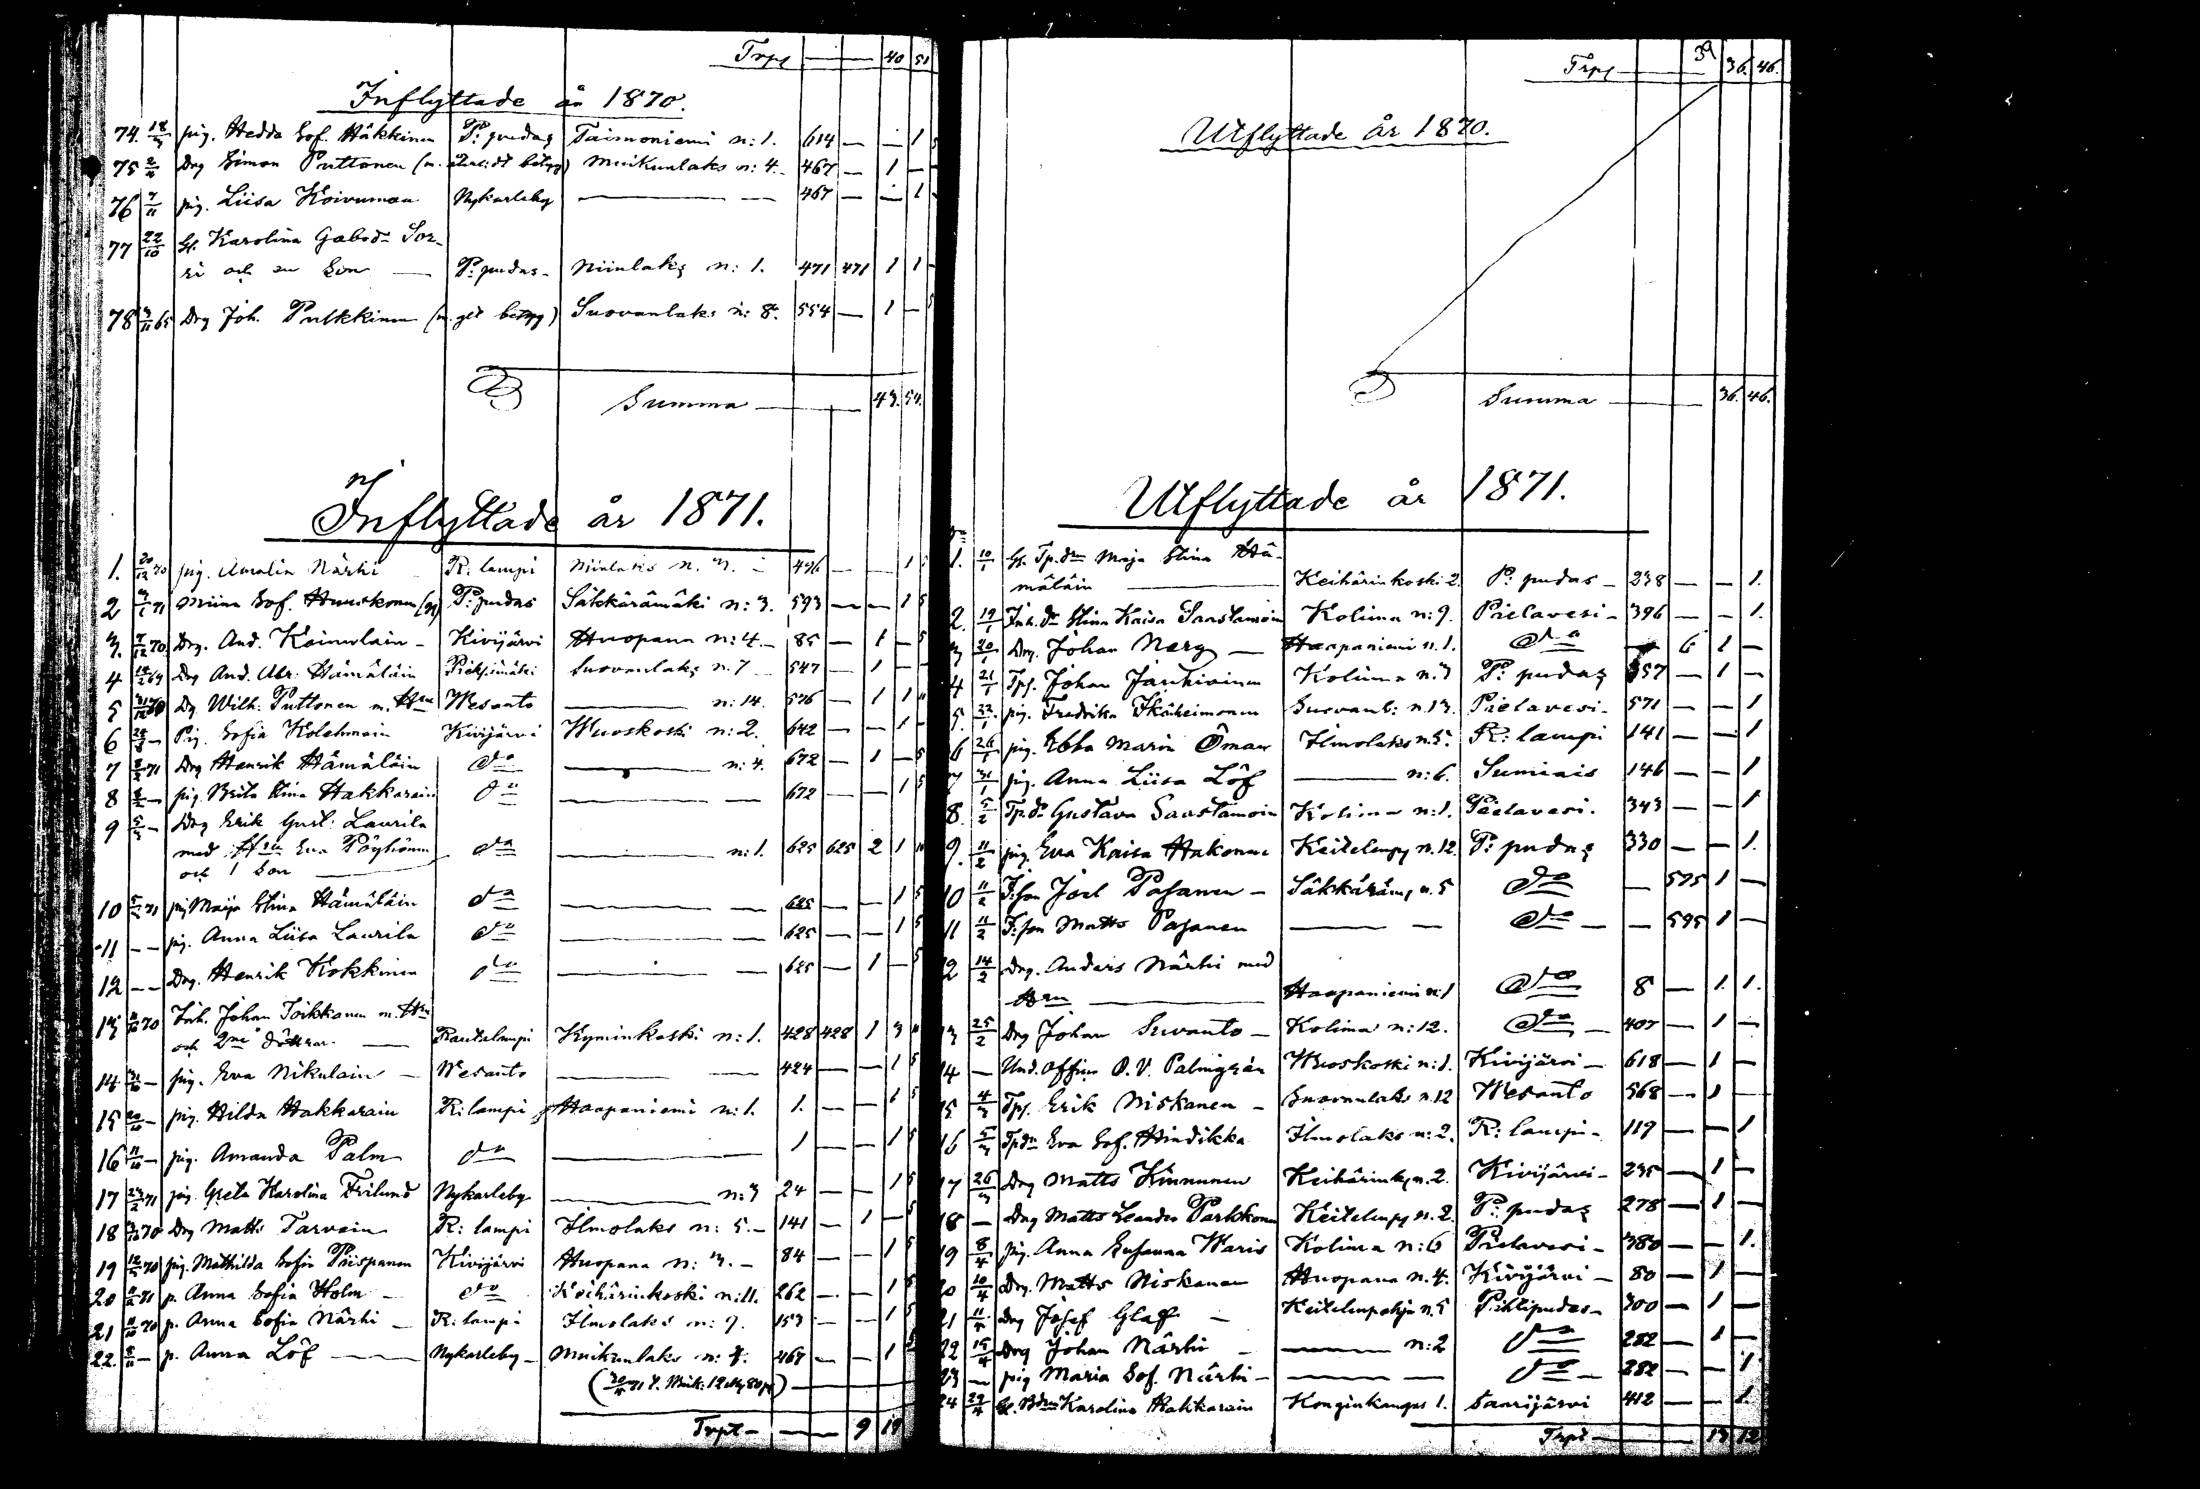 Trpt — — 40 51
Inflyttade år 1870.
74. 18/3 pig. Hedda Sof. Häkkinen P:pudas Taimoniemi n:1. 614 — — 1
75 2/4 Drg Simon Puttonen (m. betyg) Muikunlaks n:4. 467 — 1 —
76 7/11 pig. Liisa Koivumaa Nykarleby — — 467 — — 1
77 22/10 Karolina Gabrd:r Sor-
ri och en Son — P:pudas Niinlaks n:1. 471 471 1 1
78 3/11 65 Drg Joh. Pulkkinen (m. gt betyg) Suovanlaks n:8. 554 — 1 —
Summa — 43. 54.
Inflyttade år 1871.
1. 20/12 70 pig. Amalia Närhi R:lampi Niinlaks n. 3. 476 — — 1
2 3/1 71 Miina Sof. Huuskonen P:pudas Säkkärämäki n:3. 593 — — 1 5
3. 7/12 70 Drg. And. Koivulain — Kivijärvi Huopana n:4. 85 — 1 — 5
4 Drg And. Abr. Hämäläin Pieksämäki Suovanlaks n.7 547 — 1 —
5 Dg. Wilh. Puttonen m. Hru Wesanto — n:14. 576 — 1 1
6 Pig. Sofia Kolehmain Kivijärvi Wuoskoski n:2. 642 — — 1
7 2/2 71 Drg Henrik Hämäläin do — n:4. 672 — 1 — 5
8 pig. Brita Stina Hakkarain do — — 672 — — 1 5
9 5/3 — Drg Erik Gust. Laurila
med Hru Eva Pöyhönen do — n:1. 625 625 2 1
och 1 Son —
10 71 pig Maija Stina Hämäläin do — — 625 — — 1 5
11 — — pig. Anna Liisa Laurila do — — 625 — — 1 5
12 — — Drg. Henrik Kokkinen do — — 625 — 1 — 5
13 70 Inh. Johan Toikkanen m. Hru
och 2ne döttrar — Rautalampi Kyminkoski n:1. 428 428 1 3
14 — pig. Eva Nikulain — Wesanto — — 424 — — 1 5
15 — pig. Hilda Hakkarain R:lampi Haapaniemi n:1. 1. — — 1 5
16 11/10 — pig. Amanda Palm do — 1 — — 1 5
17 71 pig. Greta Karolina Frilund Nykarleby — n:3 24 — — 1 5
18 70 Drg Matts Tarvain R:lampi Ilmolaks n:5. — 141 — 1 — 5
19 70 pig. Mathilda Sofia Piispanen Kivijärvi Huopana n:3. — 84 — — 1 5
20 71 p. Anna Sofia Holm — do Keihärinkoski n:11. 262 — — 1 5
21 70 p. Anna Sofia Närhi — R:lampi Ilmolaks n:9. 153 — — 1 5
22. 8/11 — p. Anna Löf — Nykarleby — Muikunlaks n:4. 467 — — 1
Trpt — — 9 19
Trpt — 39 36. 46.
Utflyttade År 1870.
Summa — 36. 46.
Utflyttade år 1871.
1. 10/1 Tp.dr Maja Stina Hä-
mäläin — Keihärinkoski 2. P:pudas — 238 — — 1.
2. 19/1 Inh.dr Stina Kaisa Saastamoin Kolima n:9. Pielavesi — 396 — — 1.
3 20/1 Drg. Johan Nerg — Haapaniemi n.1. do — 6 1 —
4 21/1 Tps. Johan Jauhiainen Kolima n:3 P:pudas 357 — 1 —
5. pig. Fredrika Ikäheimonen Suovanl: n.13. Pielavesi — 571 — — 1
6 26/1 pig. Ebba Maria Öman Ilmolaks n.5. R:lampi 141 — — 1
7 31/1 pig. Anna Liisa Löf — n:6. Sumiais 146 — — 1
8. 5/2 Tp.dr Gustava Saastamoin Kolima n:1. Pielavesi. 343 — — 1
9. 11/2 pig. Eva Kaisa Hakonen Keitelenpy n.12 P:pudas 330 — — 1.
10 11/2 T:son Joel Pasanen — Säkkäräm, n.5 do — 595 1 —
11 11/2 T:son Matts Pasanen — — do — — 595 1 —
12 14/2 Drg. Anders Närhi med
Hru — Haapaniemi n:1 do 8 — 1. 1.
13 25/2 Drg Johan Suvanto — Kolima n:12. do — 407 — 1 —
14 — Und. Offirn O.V. Palmgrén Wuoskoski n:1. Kivijärvi — 618 — 1 —
15 4/3 Tps. Erik Niskanen — Suovanlaks n.12 Wesanto 568 — 1 —
16 5/3 Tpdr Eva Sof. Hindikka Ilmolaks n:2. R:lampi — 119 — — 1
17 26/3 Drg Matts Kinnunen Keihärinky n.2. Kivijärvi — 235 — 1 —
18 — Drg Matts Leander Parkkonen Keitelenpy n.2. P:pudas 278 — 1 —
19 8/4 pig. Anna Susanna Waris Kolima n:6 Pielavesi — 380 — — 1.
20 10/4 Drg. Matts Niskanen Huopana n.4. Kivijärvi — 80 — 1 —
21 11/4 Drg Josef Glaf — Keitelenpohja n.5 Pihtipudas — 300 — 1 —
22 15/4 Drg Johan Närhi — n:2 do 282 — 1 —
23 — pig Maria Sof. Närhi — — — do — 282 — — 1
24 29/4 Karolina Hakkarain Konginkangas 1. Saarijärvi 412 — — 1.
Trpt — 13 12